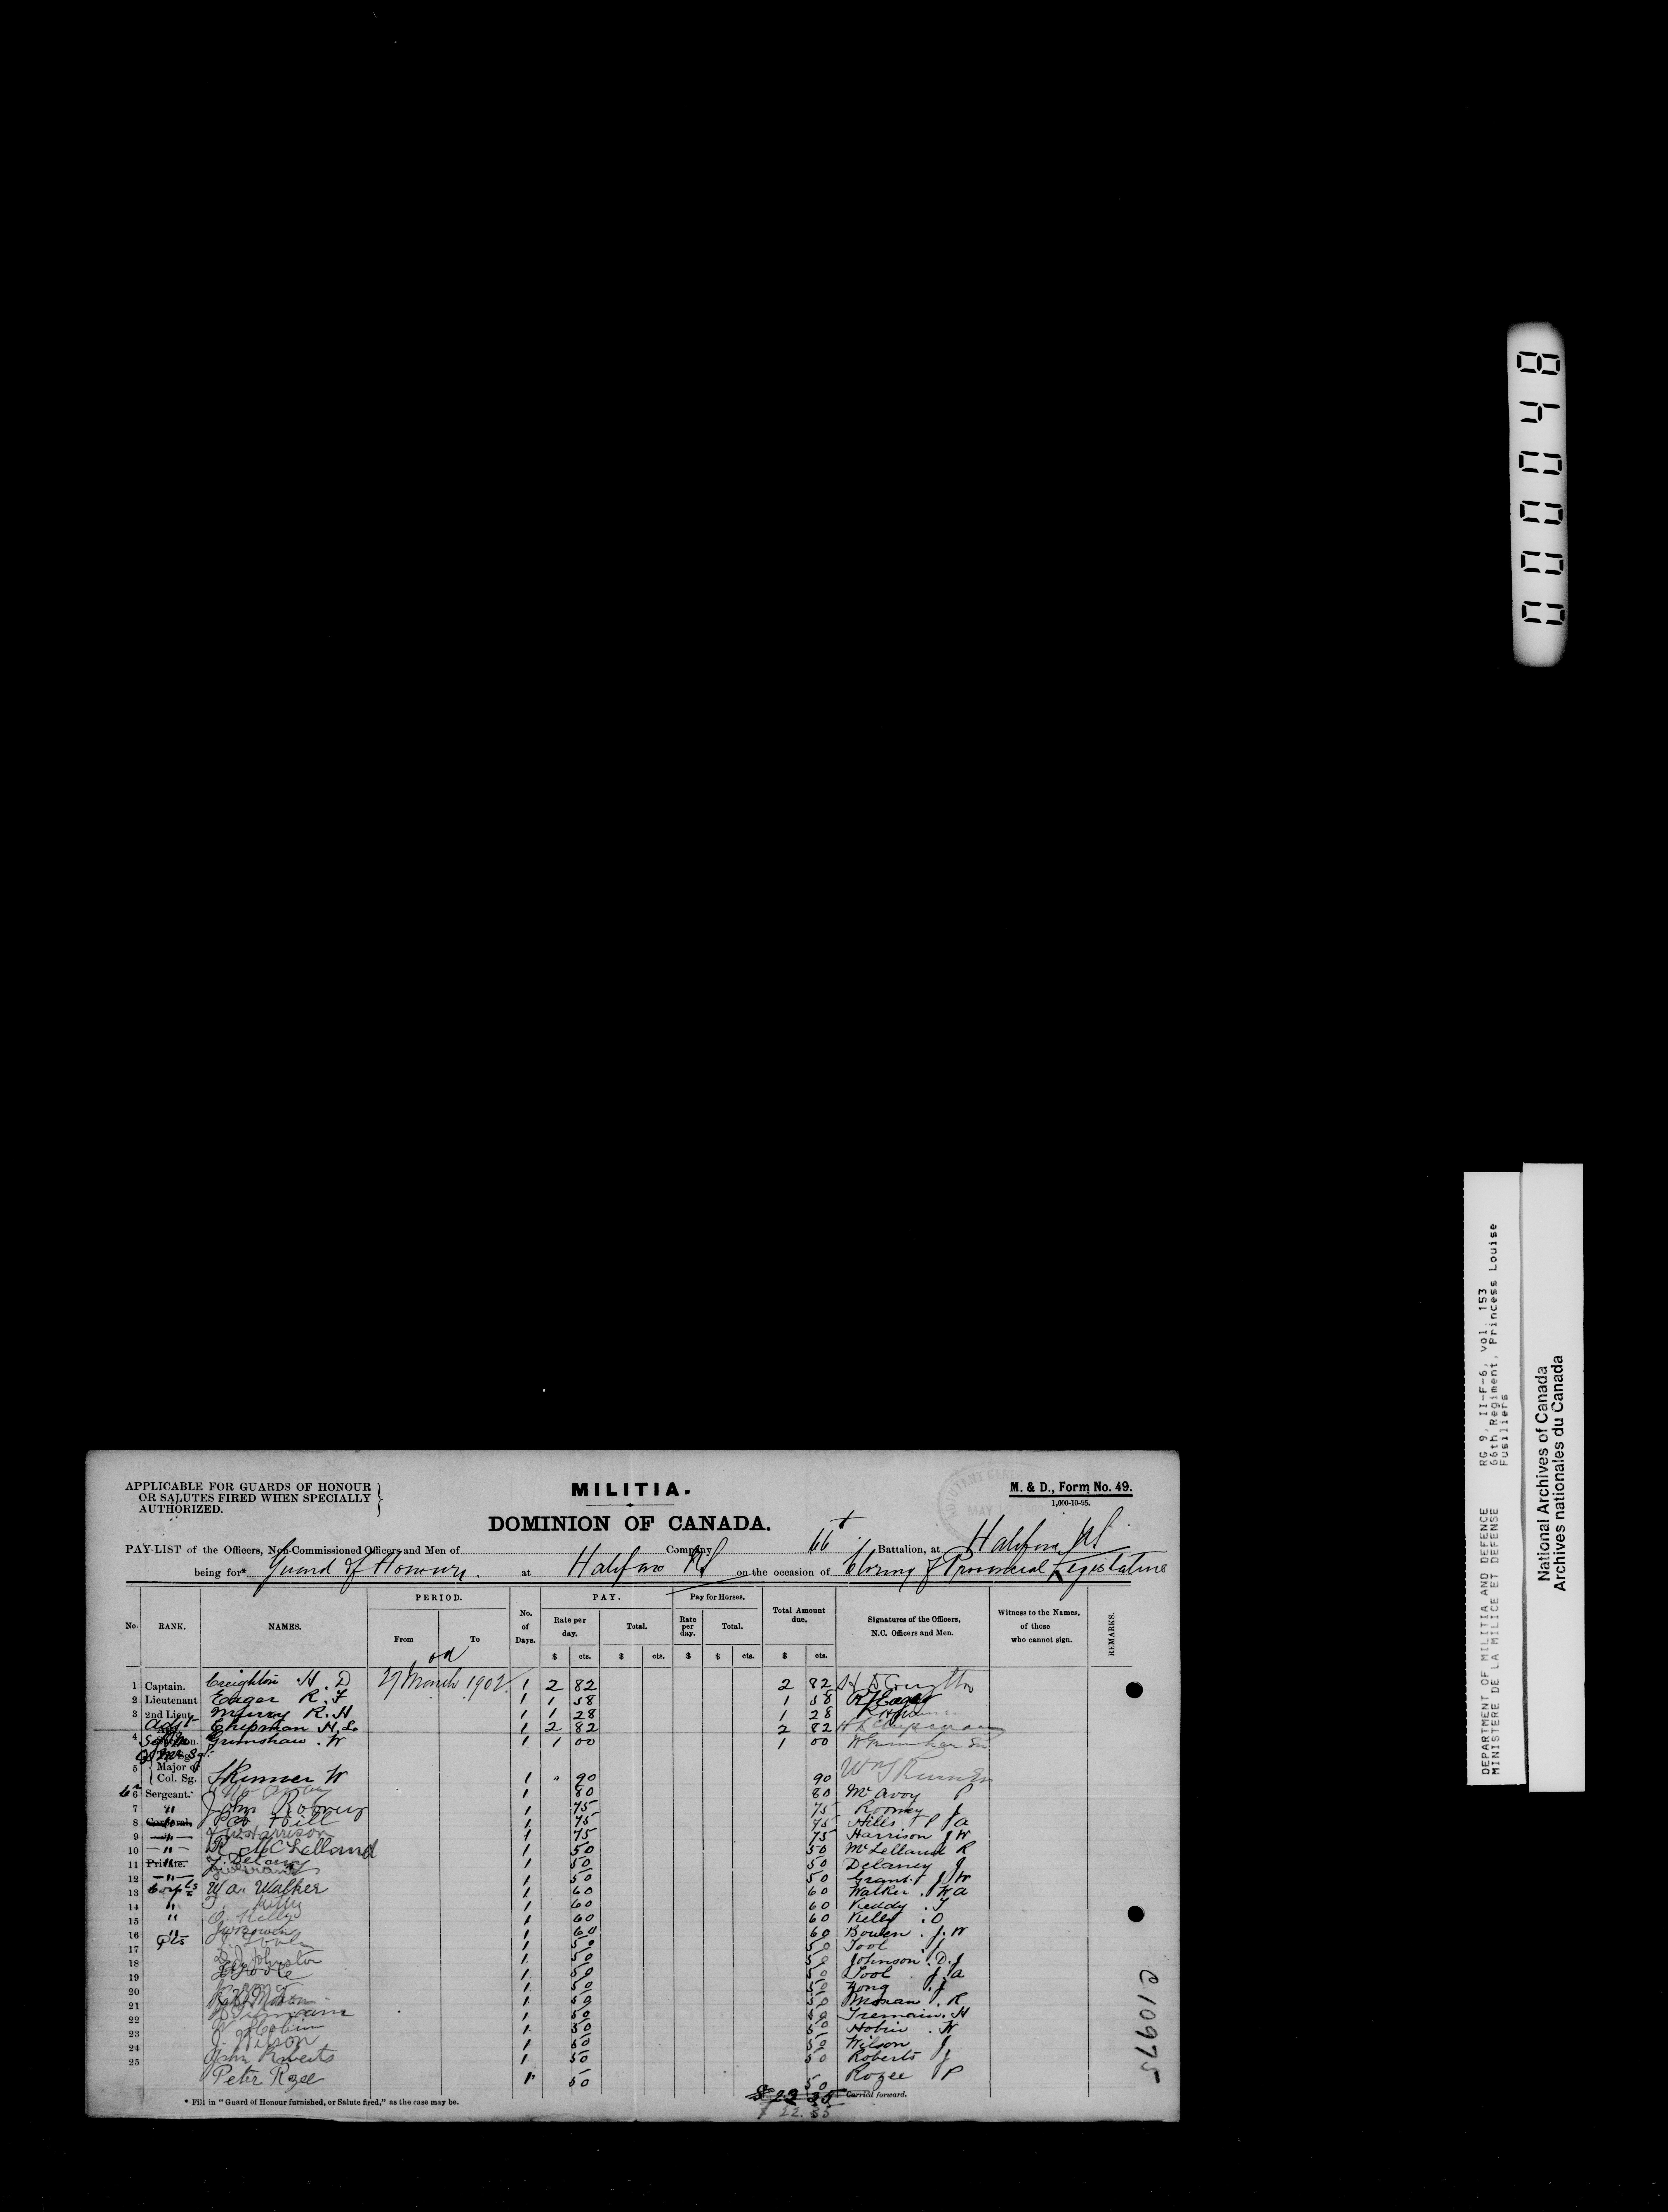 APPLICABLE FOR GUARDS OF HONOUR
OR SALUTES FIRED WHEN SPECIALLY
AUTHORIZED.
MILITIA.
DOMINION OF CANADA.
M. & D., Form No. 49.
1,000-10-95.
MAY
PAY-LIST of the Officers, Non-Commissioned Officers and Men of Company 66th Battalion, at Halifax NS
being for* Guard of Honour. at Halifax NS on the occasion of Closing of Provincial Legislature
No. RANK. NAMES. PERIOD. From To No. of Days. PAY. Rate per day. Total. Pay for Horses. Rate per day. Total. Total Amount due. Signatures of the Officers, N.C. Officers and Men. Witness to the Names, of those who cannot sign. REMARKS.
$ cts. $ cts. $ $ cts. $ cts.
1 Captain. Creighton H. D 27 March 1902 1 2 82 2 82
2 Lieutenant Eager R. F 1 1 58 1 58
3 2nd Lieut. Murray R. H 1 1 28 1 28
Adjt Chipman H. L. 1 2 82 2 82
4 Grimshaw . W 1 1 00 1 00
5 Major or Col. Sg. Skinner W 1 " 90 90
6 Sergeant. 1 80 80 McAvoy P
7 " John Rooney 1 75 75 Rooney J
8 Corporal. Hill 1 75 75 Hills P A
9 " Harrison 1 75 75 Harrison J W
10 " R McLelland 1 50 50 McLelland R
11 Private. J. Delaney 1 50 50 Delaney J
12 " 1 50 50 Grant J W
13 Corpls W a. Walker 1 60 60 Walker . W a
14 " 1 60 60 Keddy . T
15 " O. Kelly 1 60 60 Kelly . O
16 " J W Bowen 1 60 60 Bowen . J. W
17 Pts 1 50 50 Tool J
18 D. J. Johnston 1 50 50 Johnson . D. J
19 Toole 1 50 50 Tool J. a
20 1 50 50 Yong . J
21 1 50 50 Monan . R
22 Tremain 1 50 50 Tremain. H
23 Hobin 1 50 50 Hobin . W
24 J. Wilson 1 50 50 Wilson J
25 John Roberts 1 50 50 Roberts J
Peter Rozee 1 50 50 Rozee P
Carried forward.
22.35
* Fill in "Guard of Honour furnished, or Salute fired," as the case may be.
C 10975
000048
DEPARTMENT OF MILITIA AND DEFENCE RG 9, II-F-6, vol. 153
MINISTERE DE LA MILICE ET DEFENSE 66th Regiment, Princess Louise
Fusiliers
National Archives of Canada
Archives nationales du Canada